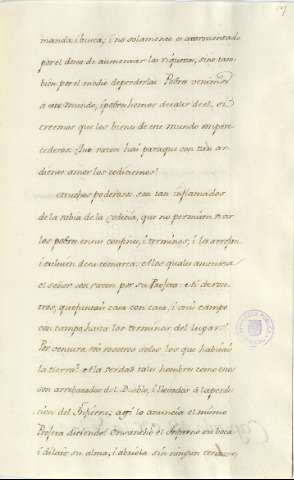 manda, i busca; i no solamente es atormentado
por el deseo de aumentar las riquezas, sino tam-
bien por el miedo de perderlas. Pobre venimos
a este mundo, i pobres hemos de salir de el, si
creemos que los bienes de este mundo son pere-
cederos. Que razon hai para que con tan ar-
diente amor los codiciemos?
Muchos poderosos son tan inflamados
de la rabia de la codicia, que no permiten estar
los pobres en sus confines, i terminos, i los arrojan
i excluyen de su comarca: a los quales amenaza
el señor con razon por su Profeta: Ai de voso-
tros, que juntais casa con casa, i un campo
con campo hasta los terminos del lugar!
Por ventura sois vosotros solos los que habitais
la tierra? A la verdad tales hombres como estos
son arrebatados del Diablo, i llevados a la perdi-
cion del Infierno, assi lo anuncia el mismo
Profeta diciendo: Ensanchó el Infierno su boca
i dilató su alma, i abriola sin ningun termino,